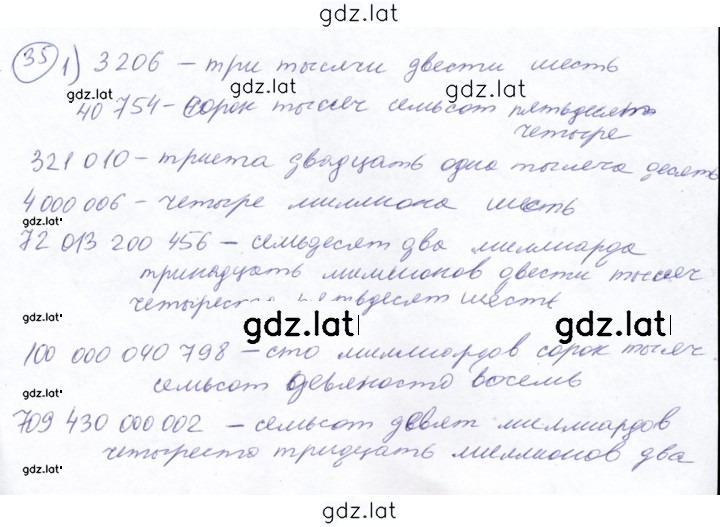 gdz.lat
35 1) 3206 – три тысячи двести шесть
gdz.lat gdz.lat gdz.lat
40 754 – сорок тысяч семьсот пятьдесят
четыре
321 010 – триста двадцать одна тысяча десять
4 000 006 – четыре миллиона шесть
gdz.lat
72 013 200 456 – семьдесят два миллиарда
тринадцать миллионов двести тысяч
четыреста пятьдесят шесть
gdz.lat gdz.lat gdz.lat
100 000 040 798 – сто миллиардов сорок тысяч
семьсот девяносто восемь
gdz.lat
709 430 000 002 – семьсот девят миллиардов
четыреста тридцать миллионов два
gdz.lat
gdz.lat